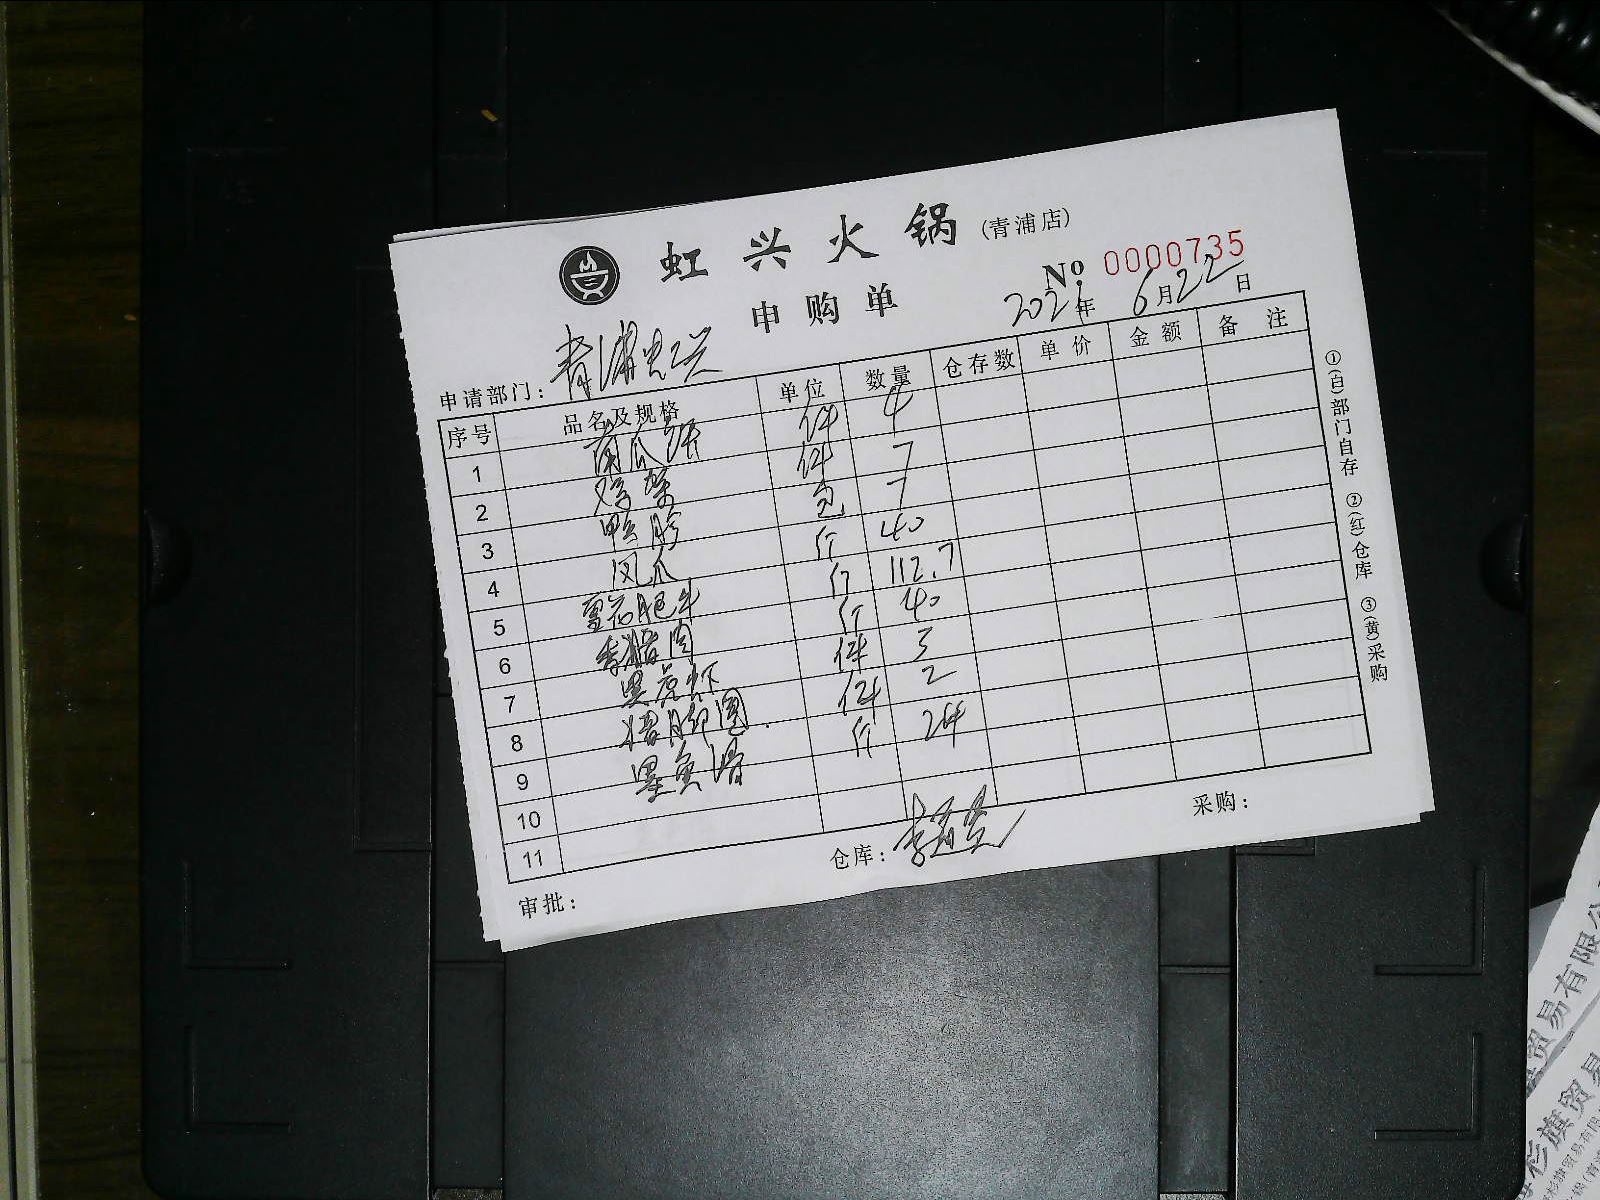 虹兴火锅(青浦店)
№ 0000735
申购单
2021年 6月22日
申请部门: 青浦虹兴
序号 品名及规格 单位 数量 仓存数 单价 金额 备注
1 南瓜饼 件 4
2 鸡架 件 7
3 鸭胗 包 7
4 凤爪 斤 40
5 雪花肥牛 斤 112.7
6 香猪肉 斤 40
7 黑虎虾 件 3
8 猪脚圈 件 2
9 墨鱼滑 斤 24
10
11
审批: 仓库: 采购:
①(白)部门自存 ②(红)仓库 ③(黄)采购
贸易有限公
杉旗贸易